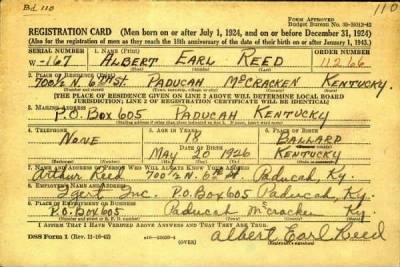 Bd. 110
110
FORM APPROVED
Budget Bureau No. 33-R012-42
REGISTRATION CARD (Men born on or after July 1, 1924, and on or before December 31, 1924)
(Also for the registration of men as they reach the 18th anniversary of the date of their birth on or after January 1, 1943.)
SERIAL NUMBER 1. NAME ORDER NUMBER
W-167 ALBERT EARL REED 11,266
2. PLACE OF RESIDENCE
700½ N. 6TH ST. PADUCAH McCRACKEN KENTUCKY
(THE PLACE OF RESIDENCE GIVEN ON LINE 2 ABOVE WILL DETERMINE LOCAL BOARD
JURISDICTION; LINE 2 OF REGISTRATION CERTIFICATE WILL BE IDENTICAL)
3. MAILING ADDRESS
P.O. BOX 605 PADUCAH KENTUCKY
4. TELEPHONE 5. AGE IN YEARS 6. PLACE OF BIRTH
NONE 18 BALLARD
DATE OF BIRTH
MAY 20 1926 KENTUCKY
7. NAME AND ADDRESS OF PERSON WHO WILL ALWAYS KNOW YOUR ADDRESS
Arthur Reed 700½ N. 6th St. Paducah, Ky.
8. EMPLOYER'S NAME AND ADDRESS
Igert Inc. P.O. Box 605 Paducah, Ky.
9. PLACE OF EMPLOYMENT OR BUSINESS
P.O. Box 605 Paducah McCracken Ky.
I AFFIRM THAT I HAVE VERIFIED ABOVE ANSWERS AND THAT THEY ARE TRUE.
DSS Form 1 (Rev. 11-16-42) (OVER) Albert Earl Reed